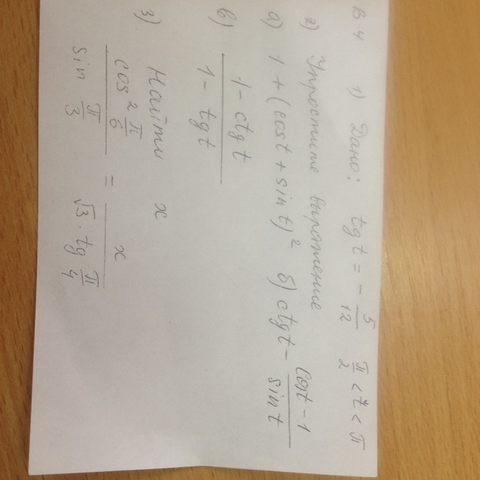 В 4 1) Дано: tg t = - 5/12 π/2 < t < π
2) Упростите выражение
а) 1 + (cos t + sin t)² б) ctg t - (cos t - 1)/(sin t)
в) (1 - ctg t)/(1 - tg t)
3) Найти x
(cos² π/6)/(sin π/3) = x/(√3 · tg π/4)